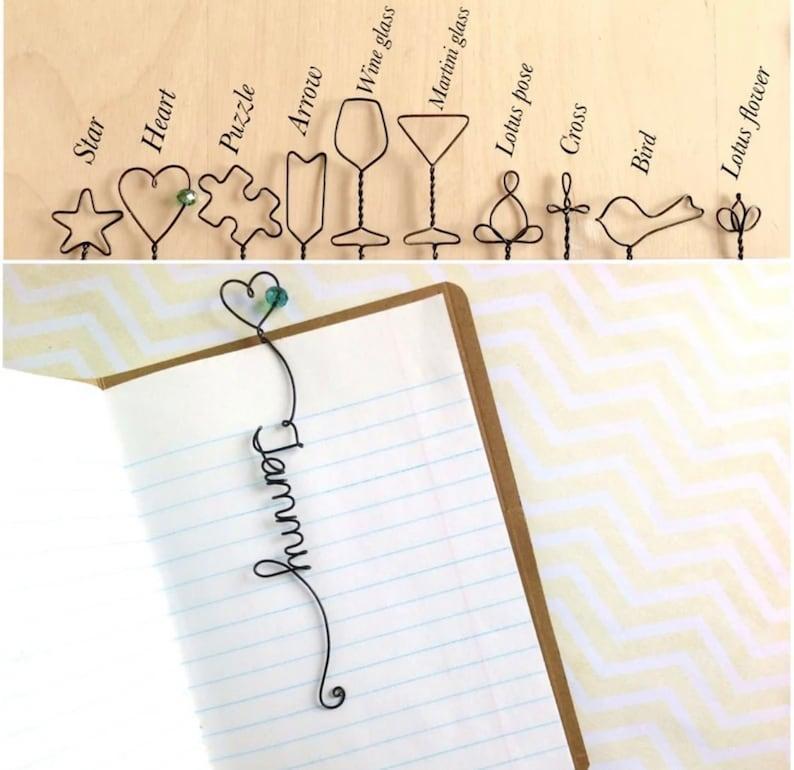 Star
Heart
Puzzle
Arrow
Wine glass
Martini glass
Lotus pose
Cross
Bird
Lotus flower
Tammy